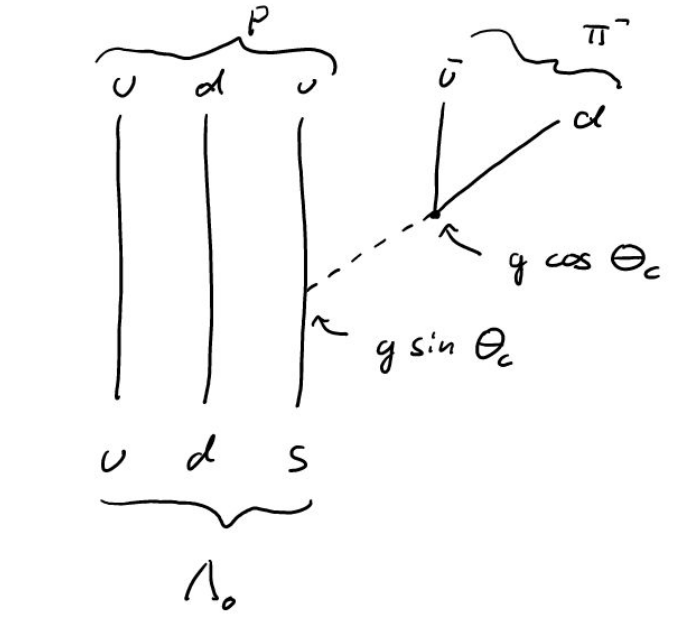 P
π⁻
u d u
ū
d
g cos Θc
g sin Θc
u d s
Λ₀